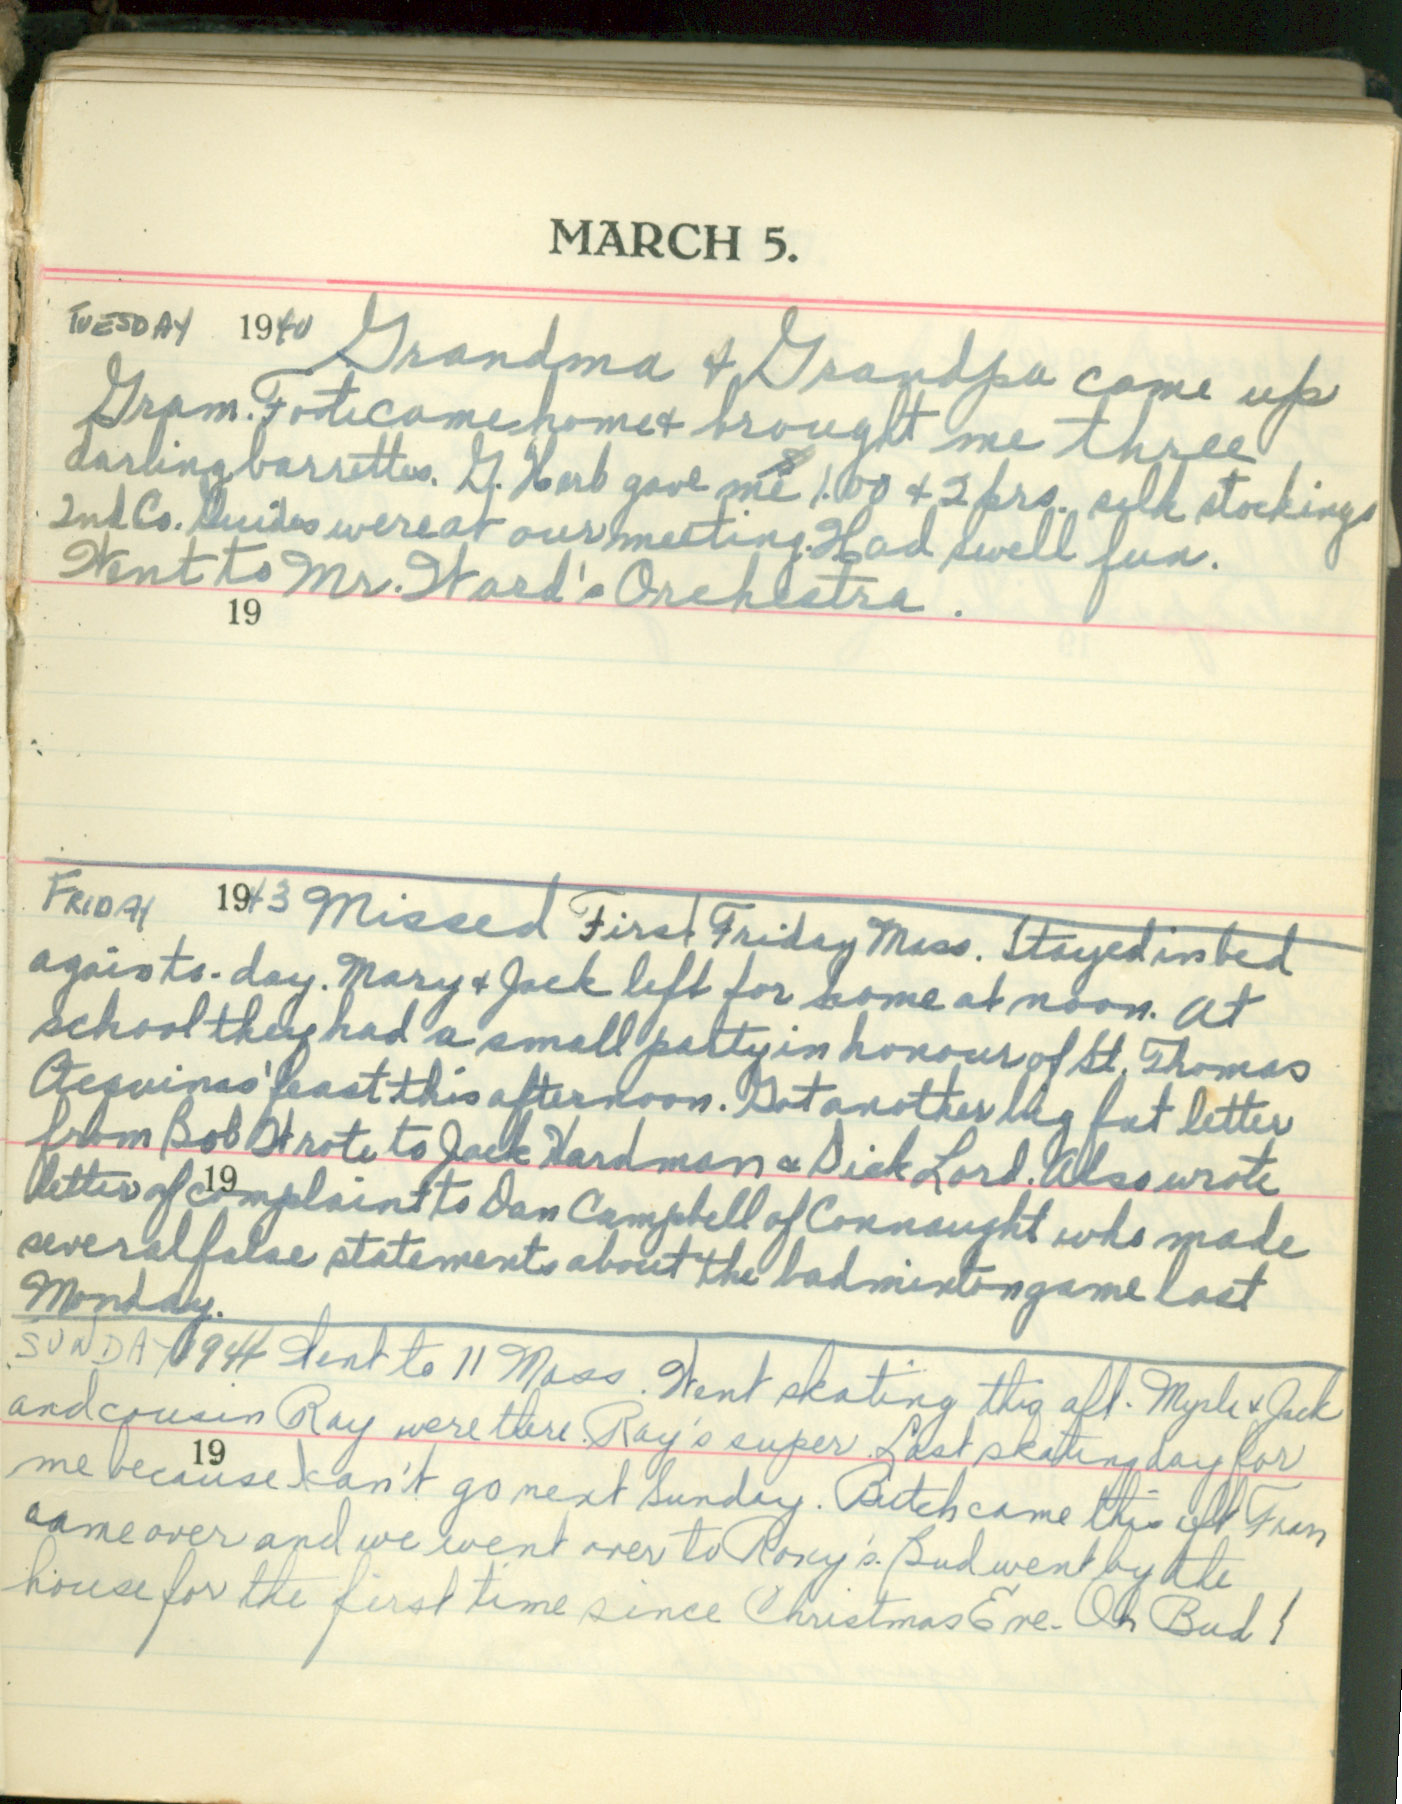 MARCH 5.
TUESDAY 1940 Grandma & Grandpa came up
Gram. Foote came home & brought me three
darling barrettes. G. Herb gave me $1.00 & 2 prs. silk stockings
2nd Co. Guides were at our meeting. Had swell fun.
Went to Mr. Ward's Orchestra.
19
FRIDAY 1943 Missed First Friday Mass. Stayed in bed
again to-day. Mary & Jack left for home at noon. At
school they had a small party in honour of St. Thomas
Acquinas' feast this afternoon. Got another big fat letter
from Bob Wrote to Jack Hardman & Dick Lord. Also wrote
19
letter of complaint to Dan Campbell of Connaught who made
several false statements about the badminton game last
Monday.
SUNDAY 1944 Went to 11 Mass. Went skating this aft. Myrle & Jack
and cousin Ray were there. Ray's super. Last skating day for
19
me because I can't go next Sunday. Butch came this aft. Fran
came over and we went over to Roxy's. Bud went by the
house for the first time since Christmas Eve. Oh Bud!